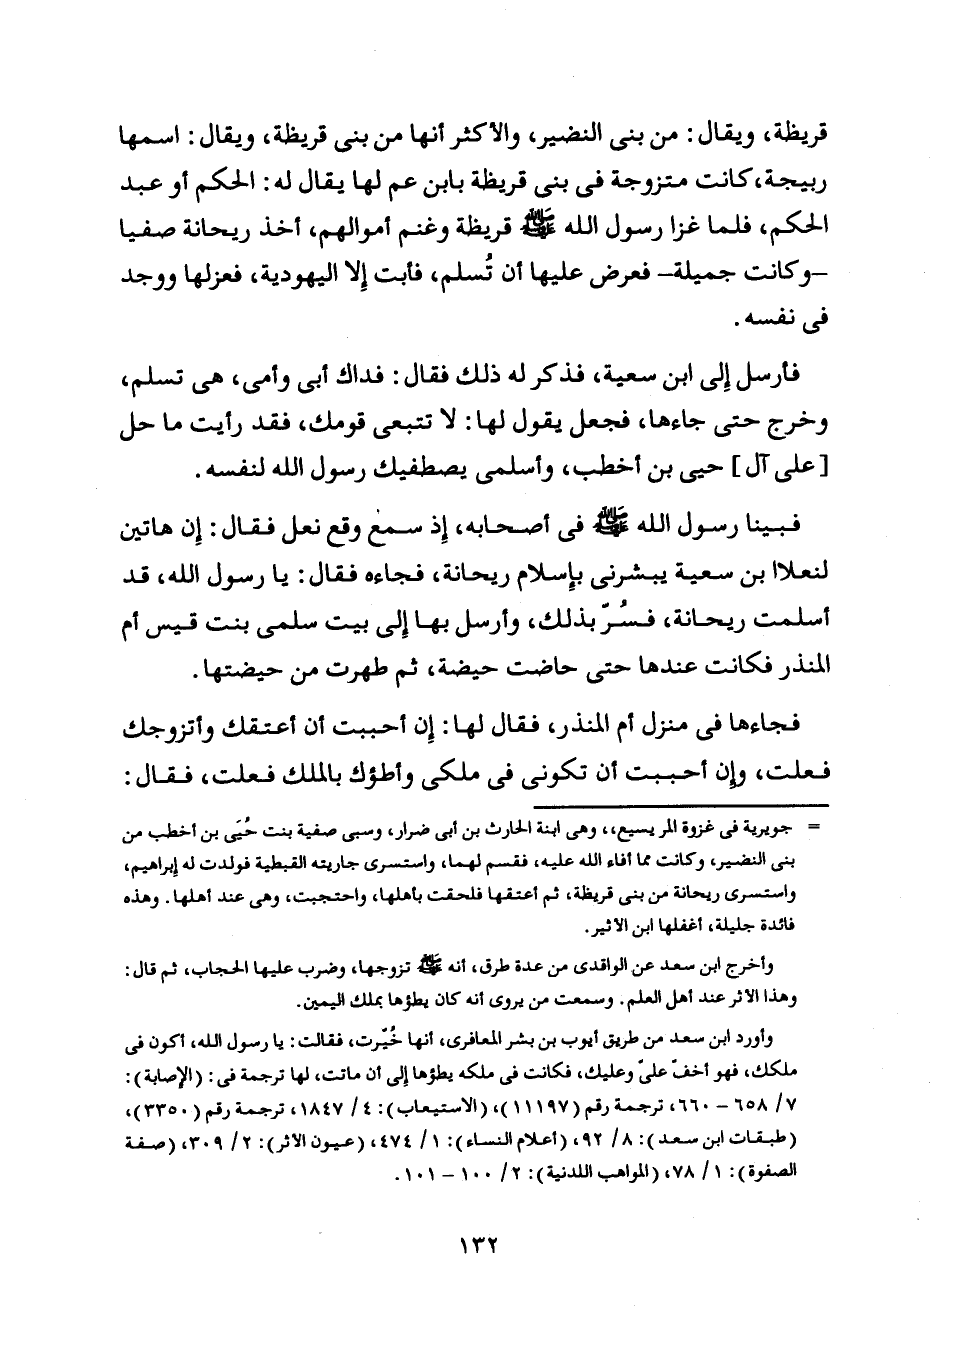 قريظة، ويقال: من بنى النضير، والأكثر أنها من بنى قريظة، ويقال: اسمها
ربيجة، كانت متزوجة فى بنى قريظة بابن عم لها يقال له: الحكم أو عبد
الحكم، فلما غزا رسول الله ﷺ قريظة وغنم أموالهم، أخذ ريحانة صفيا
–وكانت جميلة– فعرض عليها أن تُسلم، فأبت إلا اليهودية، فعزلها ووجد
فى نفسه.
فأرسل إلى ابن سعية، فذكر له ذلك فقال: فداك أبى وأمى، هى تسلم،
وخرج حتى جاءها، فجعل يقول لها: لا تتبعى قومك، فقد رأيت ما حل
[على آل] حيى بن أخطب، وأسلمى يصطفيك رسول الله لنفسه.
فبينا رسول الله ﷺ فى أصحابه، إذ سمع وقع نعل فقال: إن هاتين
لنعلاا بن سعية يبشرنى بإسلام ريحانة، فجاءه فقال: يا رسول الله، قد
أسلمت ريحانة، فسُرّ بذلك، وأرسل بها إلى بيت سلمى بنت قيس أم
المنذر فكانت عندها حتى حاضت حيضة، ثم طهرت من حيضتها.
فجاءها فى منزل أم المنذر، فقال لها: إن أحببت أن أعتقك وأتزوجك
فعلت، وإن أحببت أن تكونى فى ملكى وأطؤك بالملك فعلت، فقال:
= جويرية فى غزوة المريسيع،، وهى ابنة الحارث بن أبى ضرار، وسبى صفية بنت حُيَى بن أخطب من
بنى النضير، وكانت مما أفاء الله عليه، فقسم لهما، واستسرى جاريته القبطية فولدت له إبراهيم،
واستسرى ريحانة من بنى قريظة، ثم أعتقها فلحقت بأهلها، واحتجبت، وهى عند أهلها. وهذه
فائدة جليلة، أغفلها ابن الاثير.
وأخرج ابن سعد عن الواقدى من عدة طرق، أنه ﷺ تزوجها، وضرب عليها الحجاب، ثم قال:
وهذا الاثر عند أهل العلم. وسمعت من يروى أنه كان يطؤها بملك اليمين.
وأورد ابن سعد من طريق أيوب بن بشر المعافرى، أنها خُيّرت، فقالت: يا رسول الله، أكون فى
ملكك، فهو أخفّ علىّ وعليك، فكانت فى ملكه يطؤها إلى أن ماتت، لها ترجمة فى: (الإصابة):
٧/ ٦٥٨ – ٦٦٠، ترجمة رقم (١١١٩٧)، (الاستيعاب): ٤/ ١٨٤٧، ترجمة رقم (٣٣٥٠)،
(طبقات ابن سعد): ٨/ ٩٢، (أعلام النساء): ١/ ٤٧٤، (عيون الاثر): ٢/ ٣٠٩، (صفة
الصفوة): ١/ ٧٨، (المواهب اللدنية): ٢/ ١٠٠ – ١٠١.
١٣٢